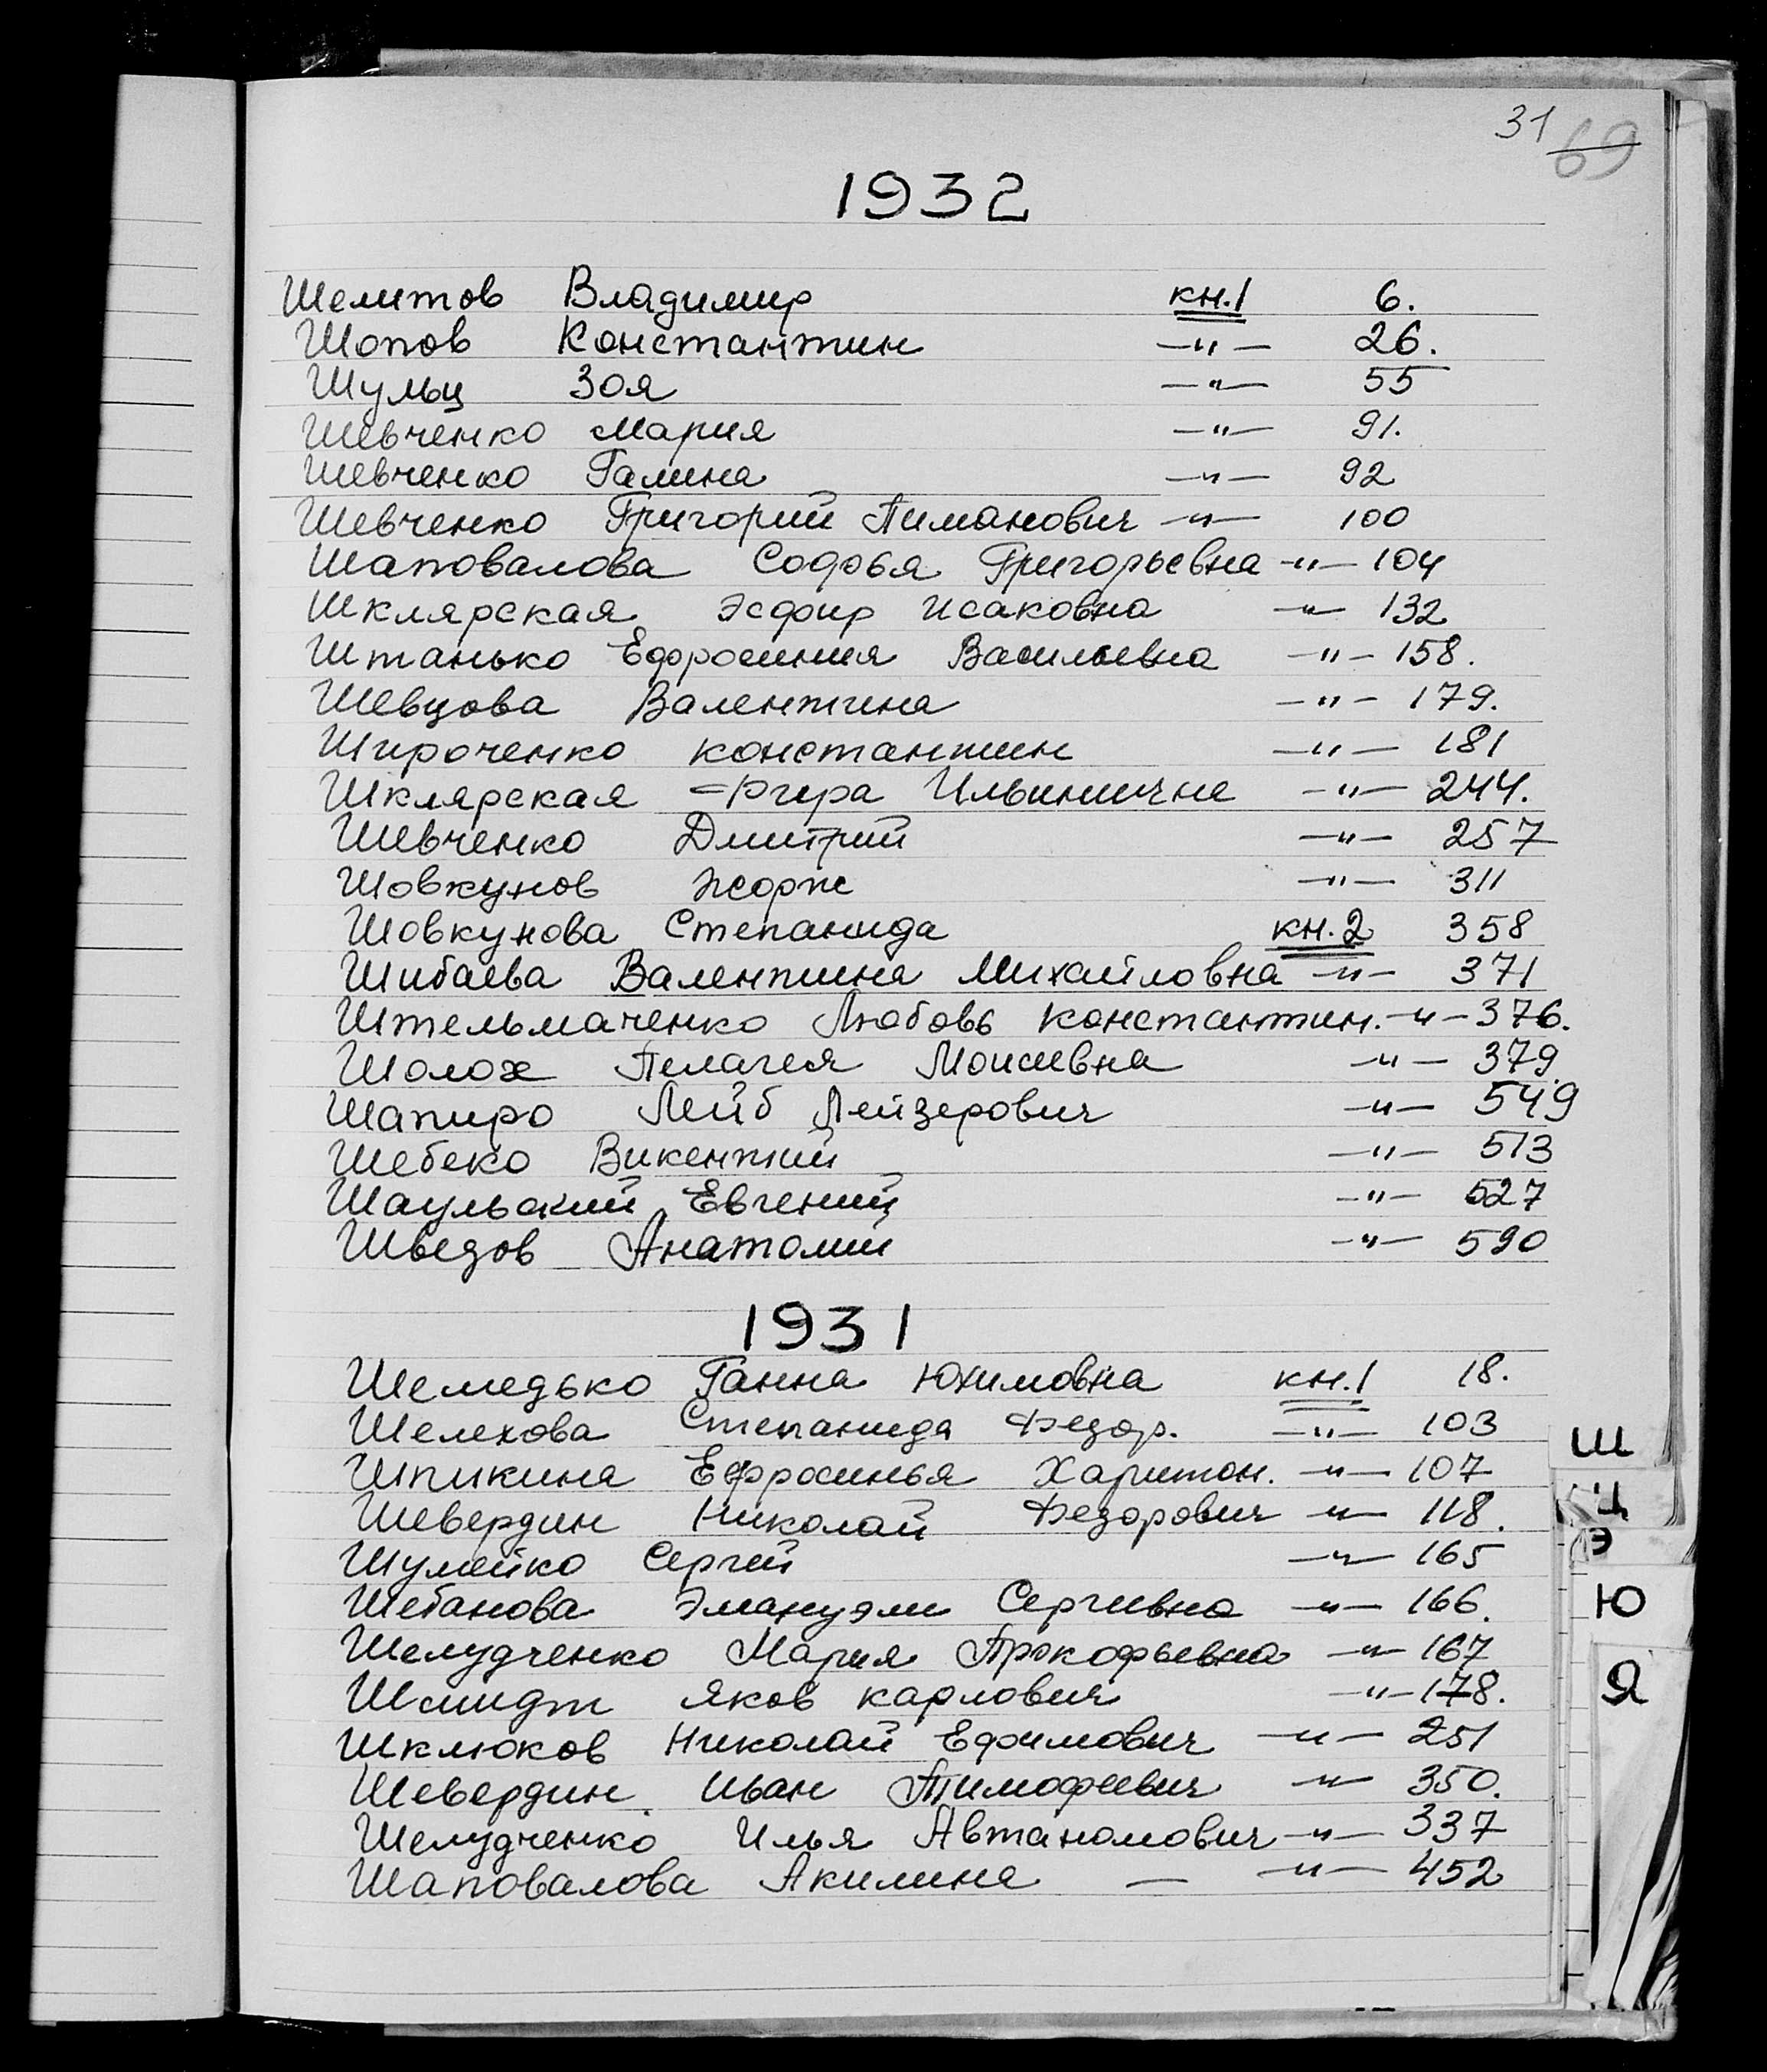 31 69
1932
Шелитов Владимир кн.1 6.
Шопов Константин —"— 26.
Шульц Зоя —"— 55
Шевченко Мария —"— 91.
Шевченко Галина —"— 92
Шевченко Григорий Пиманович —"— 100
Шаповалова Софья Григорьевна —"— 104
Шклярская Эсфир Исаковна —"— 132
Штанько Ефросиния Васильевна —"— 158.
Шевцова Валентина —"— 179.
Широченко Константин —"— 181
Шклярская Ильинична —"— 244.
Шевченко Дмитрий —"— 257
Шовкунов Жорж —"— 311
Шовкунова Степанида кн.2 358
Шибаева Валентина Михайловна —"— 371
Штельмаченко Любовь Константин. —"— 376.
Шолох Пелагея Моисеевна —"— 379.
Шапиро Лейб Лейзерович —"— 549
Шебеко Викентий —"— 513
Шаульский Евгений —"— 527
Шведов Анатолий —"— 590
1931
Шемедько Ганна Юхимовна кн.1 18.
Шелехова Степанида Федор. —"— 103
Шпикина Ефросинья Харитон. —"— 107
Шевердин Николай Федорович —"— 118.
Шумейко Сергей —"— 165
Шебанова Эмануэли Сергеевна —"— 166.
Шелудченко Мария Прокофьевна —"— 167
Шмидт Яков Карлович —"— 178.
Шклюков Николай Ефимович —"— 251
Шевердин Иван Тимофеевич —"— 350.
Шелудченко Илья Автаномович —"— 337
Шаповалова Акилина — —"— 452
Ш
Щ
Э
Ю
Я